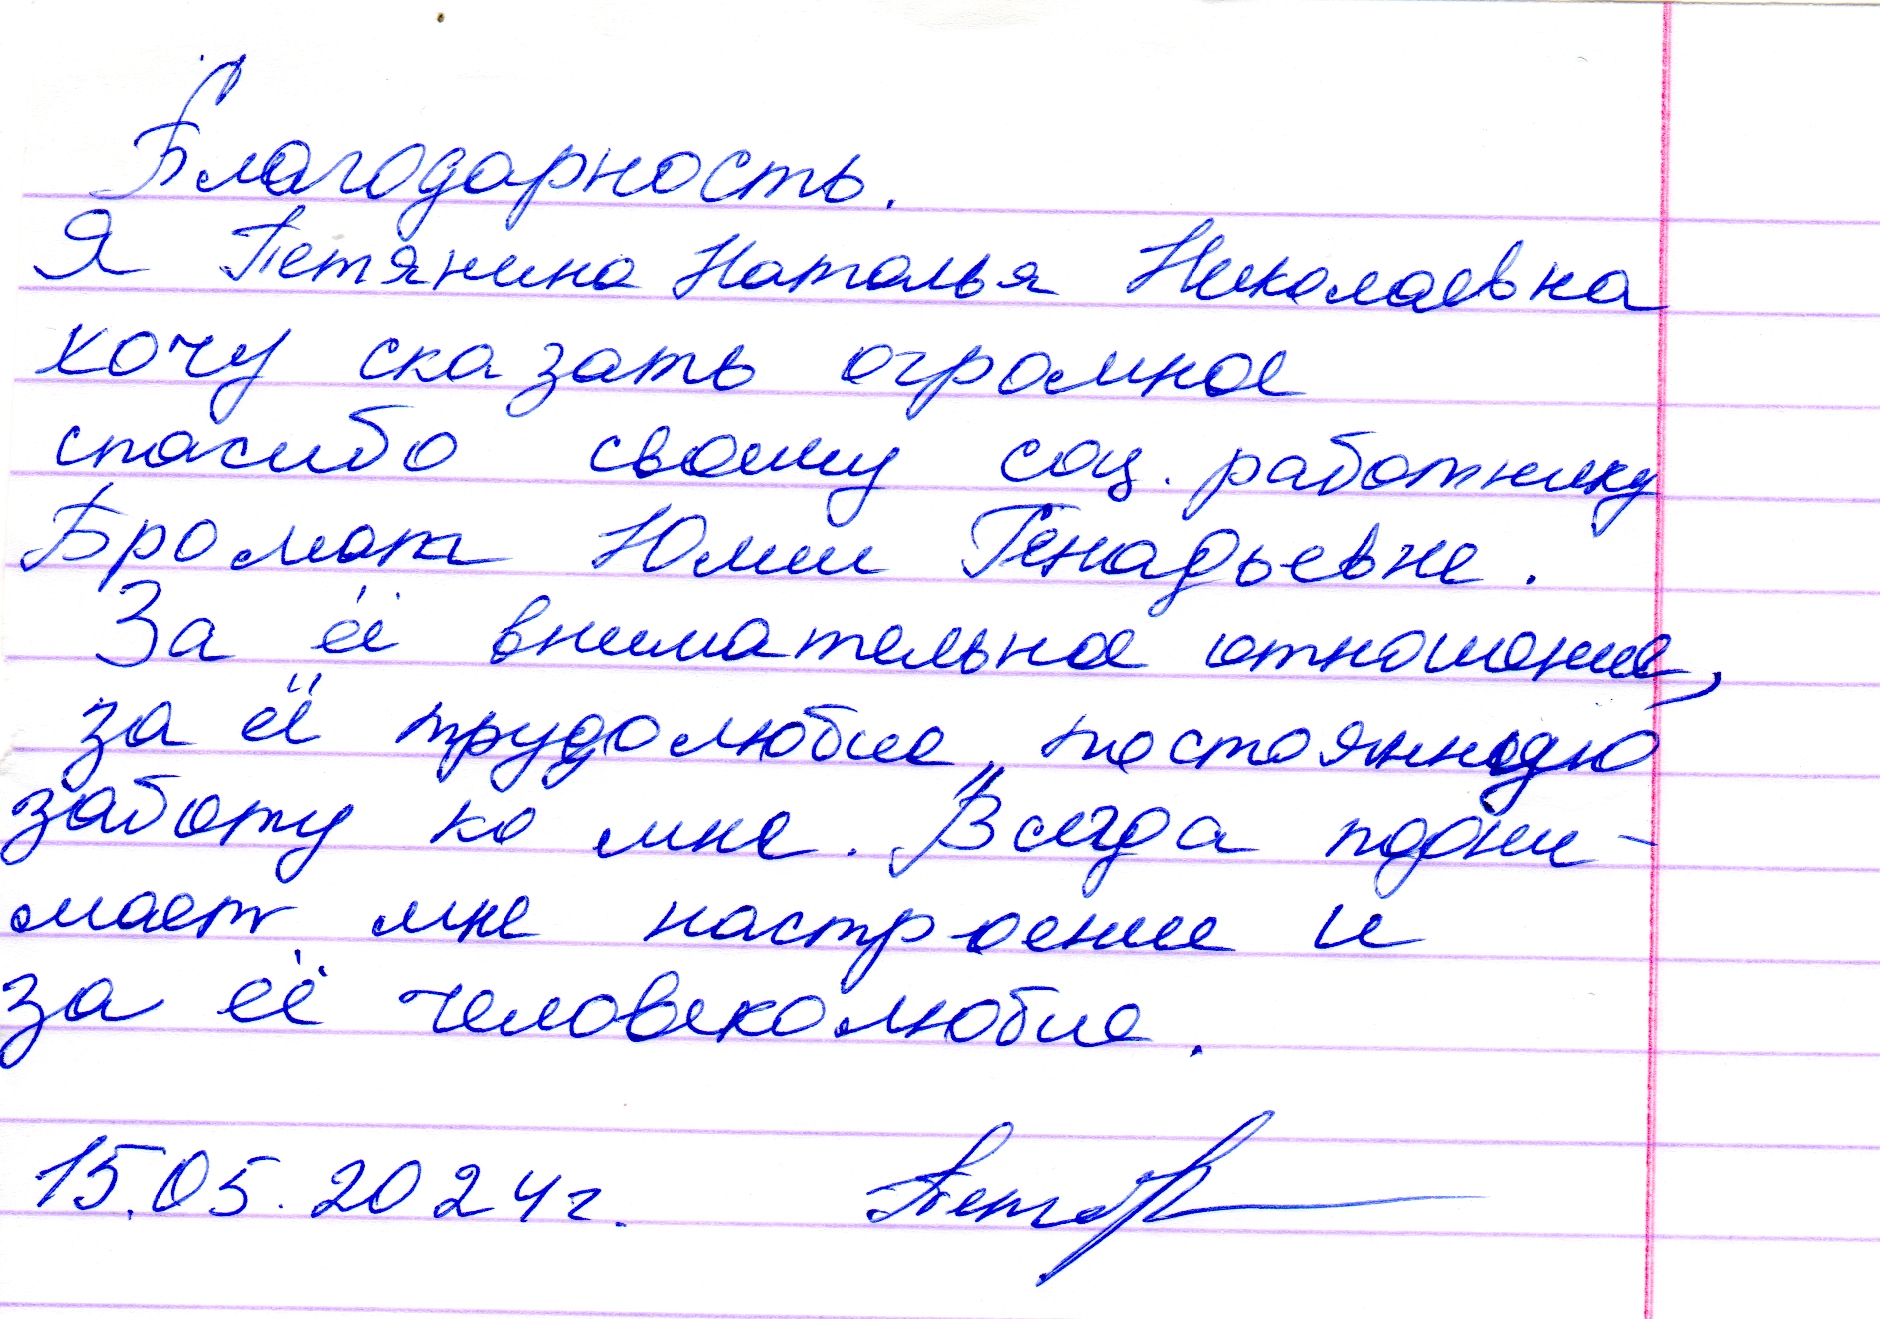 Благодарность.
Я Петянина Наталья Николаевна
хочу сказать огромное
спасибо своему соц. работнику
Юлии Генадьевне.
За её внимательное отношение,
за её трудолюбие, постоянную
заботу ко мне. Всегда подни-
мает мне настроение и
за её человеколюбие.
15.05.2024г.